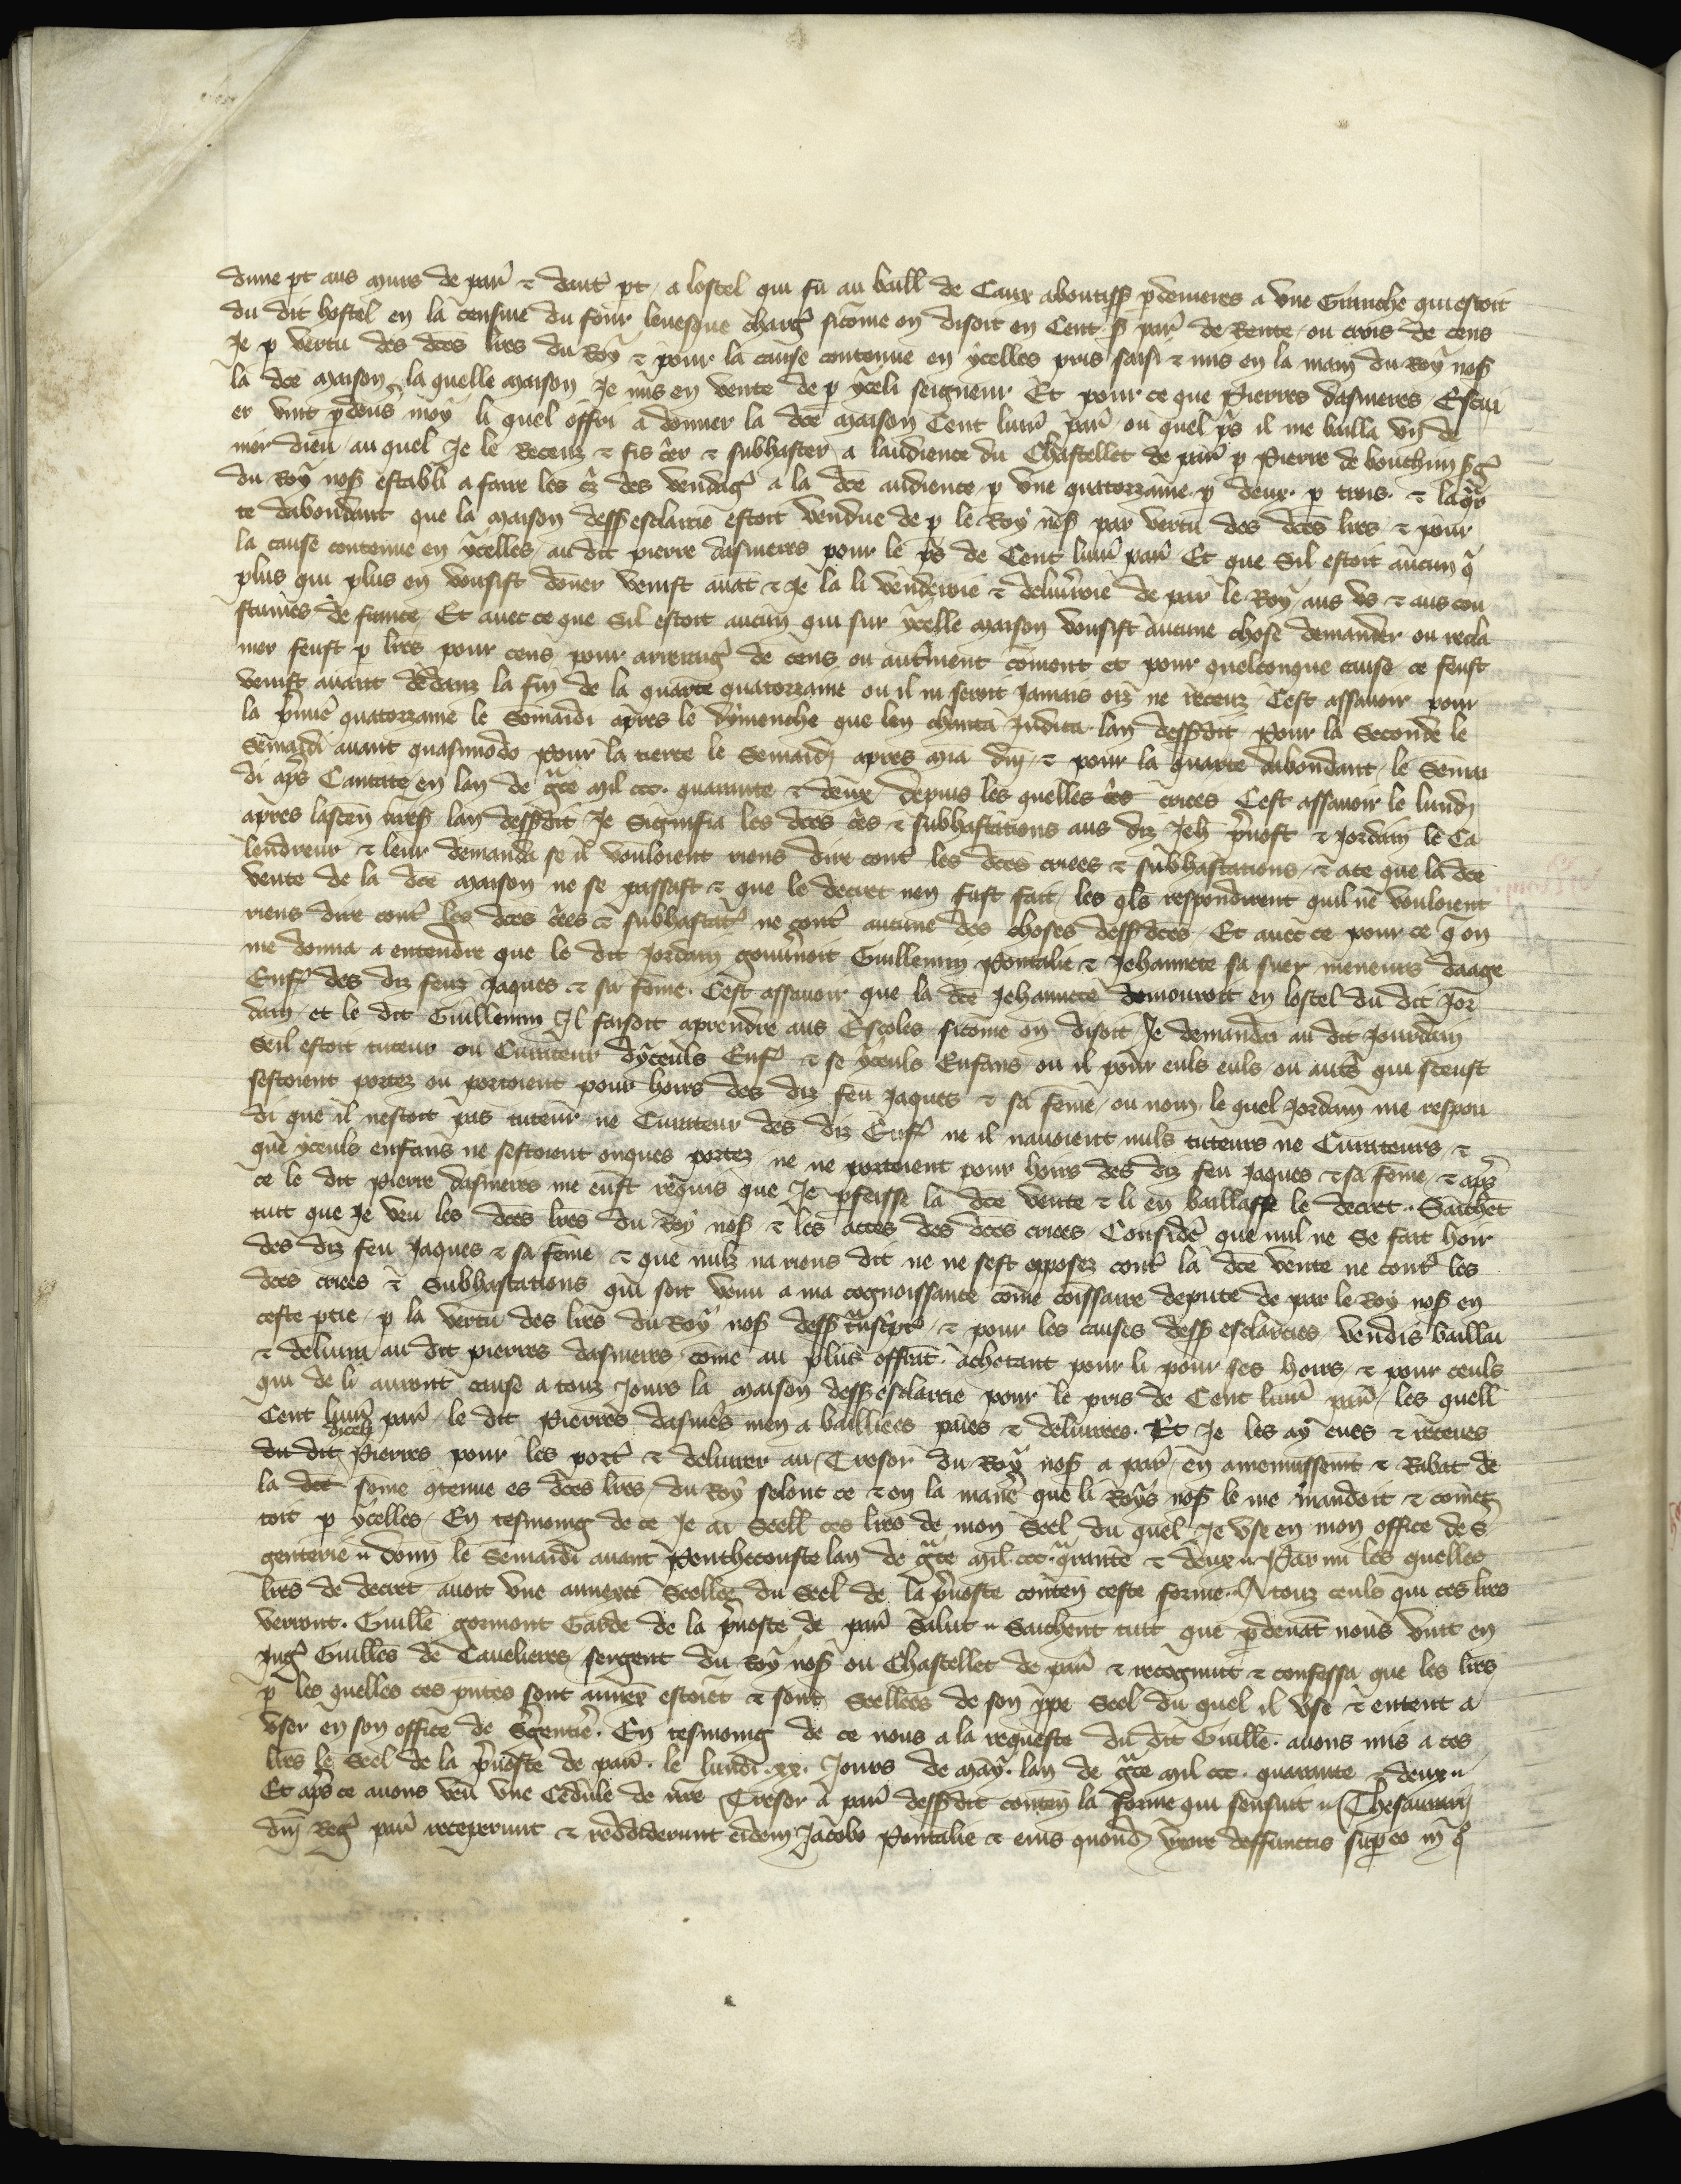 dune pt aus murs de par̃ ⁊ dautr̃ pt / a lostel qui fu au baill de Caux aboutiss̃ p derrieres a vne Granche qui estoit
du dit hostel en la censiue du four leuesque charg̃ sicome on disoit en Cent s̃ par̃ de Rente / ou crois de cens
Je p vertu des dces lr̃es du Roy ⁊ pour la cause contenue en ycelles pris saisi ⁊ mis en la main du Roy nos̃
la dce maison / la quelle maison Je mis en vente de p yceli seigneur Et pour ce que Pierres dasnieres Escui
er vint p deuãt moy li quel offri a donner la dce maison Cent liur̃ par̃ / ou quel ps̃ il me bailla vn de
nier dieu / au quel Je le Receuz ⁊ fis c̃er ⁊ subhaster a laudience du Chastellet de par̃ p Pierre de bouchun sg̃
du Roy nos̃ establi a faire les c̃z des vendag̃ a la dce audience / p vne quatorzaine p deux p trois ⁊ laq̃r
te dabondant que la maison dess̃ esclarcie estoit vendue de p le Roy nos̃ par vertu des dces lr̃es ⁊ pour
la cause contenue en ycelles / au dit pierre dasnieres pour le ps̃ de Cent liur̃ par̃ Et que Sil estoit aucun q̃
plus qui plus en vousist doner venist auãt ⁊ Je la li venderoie ⁊ deliur̃oie de par le Roy / aus vs ⁊ aus cou
stumes de france / Et auec ce que Sil estoit aucun qui sur ycelle maison vousist aucune chose demander ou recla
mer feust p lr̃es pour cens pour arrierag̃ de cens ou autrement coment et pour quelconque cause ce feust
venist auant dedanz la fin de la quarte quatorzaine ou il ni seroit Jamais oiz ne receuz / Cest assauoir pour
la p̃mie quatorzaine le Semaidi apres le dymenche que len chanta Judica lan dess̃dit Pour la Seconde le
Semaidi auant quasimodo Pour la tierce le Semaidi apres mia dñi ⁊ pour la quarte dabondant / le Semai
di aps̃ Cantate en lan de g̃ce mil ccc. quarante ⁊ deux / depuis les quelles c̃es criees Cest assauoir le lundi
apres lascen̄ nr̃es̃ lan dess̃dit Je Signifia les dces c̃es ⁊ subhastations aus diz Jeh̃ p̃uost ⁊ Jordain le Ca
lendreur ⁊ leur demanda se il vouloient riens dire contr̃ les dces criees ⁊ subhastations / ⁊ ace que la dce
vente de la dce maison ne se passast ⁊ que le decret nen fust fait / les qls respondirent quil ne vouloient
riens dire contr̃ les dces c̃ees ⁊ subhastat̃ ne contr̃ aucune des choses dess̃dces / Et auec ce pour ce q̃ on
me donna a entendre que le dit Jordain gouuernoit Guillemin Pontalie ⁊ Jehannete sa suer meneurs daage
Enf̃ des diz feuz Jaques ⁊ sa feme. Cest assauoir que la dce Jehannete demouroit en lostel du dit Jor
dain / et le dit Guillemin Il faisoit aprendre aus Escoles sicome on disoit Je demandai au dit Jourdain
Seil estoit tuteur ou Curateur dyceuls Enf̃ ⁊ se yceuls Enfans ou il pour euls euls ou autr̃ qui sceust
sestoient portez ou portoient pour hoirs des diz feu Jaques ⁊ sa feme / ou nom / le quel Jordain me respon
di que il nestoit pas tuteur ne Curateur des diz Enf̃ ne il nauoient nuls tuteurs ne Curateurs ⁊
que yceuls enfans ne sestoient onques portez ne ne portoient pour hoirs des diz feu Jaques ⁊ sa feme / ⁊ aps̃
ce le dit pierre dasnieres me eust requis que Je p̃feisse la dce vente ⁊ li en baillasse le decret. Saichẽt
tuit que Je veu les dces lr̃es du Roy nos̃ ⁊ les actes des dces criees Considere que nul ne Se fait hoir
des diz feu Jaques ⁊ sa feme / ⁊ que nulz na riens dit ne ne sest opposez contr̃ la dce vente ne contr̃ les
dces criees ⁊ Subhastations qui soit venu a ma cognoissance come comissaire depute de par le Roy nos̃ en
ceste ptie / p la vertu des lr̃es du Roy nos̃ dess̃ tnscript̃ / ⁊ pour les causes dess̃ esclarcies vendis baillai
⁊ deliurai au dit pierres dasnieres come au plus offrãt achetant pour li pour ses hoirs ⁊ pour ceuls
qui de li auront cause a touz Jours la maison dess̃ esclarcie pour le pris de Cent liur̃ par̃ / les quell
Cent liur̃ par̃ le dit Pierres dasnie͂s men a baillees paies ⁊ deliurees. Et Je les ay eues ⁊ receues
du dit diceli Pierres pour les port̃ ⁊ deliurer au Tresor du Roy nos̃ a par̃ en amenuissemt ⁊ Rabat de
la dce some 9tenue es dces lr̃es du Roy selont ce ⁊ en la maniere que li Roys nos̃ le me mandoit ⁊ comet
toit p ycelles / En tesmoing de ce Je ai Seell ces lr̃es de mon Seel du quel Je vse en mon office de s̃
genterie .. Donn̄ le Semaidi auant Penthecouste lan de g̃ce mil ccc. q̃rante ⁊ deux .. Parmi les quelles
lr̃es de decret auoit vne annexee Seellee du Seel de la p̃uoste conten̄ ceste forme. A touz ceuls qui ces lr̃es
verront. Guill̃e gormont Garde de la p̃uoste de par̃ Salut .. Saichent tuit que p deuãt nous vint en
Jug̃ Guill̃es de Cauelieres sergent du Roy nos̃ ou Chastellet de par̃ ⁊ recognut ⁊ confessa que les lr̃es
p les quelles ces p̃ntes sont annex̃ estoiẽt ⁊ sont Seellees de son p̃pe Seel du quel il vse ⁊ entent a
vser en son office de Sergentie͂. En tesmoing de ce nous a la requeste du dit Guill̃e. auons mis a ces
lr̃es le Seel de la p̃uoste de par̃. le lundi .xx. Jours de may. lan de g̃ce mil ccc. quarante ⁊ deux ..
Et aps̃ ce auons veu vne Cedule de nr̃e Tresor a par̃ dess̃dit conten̄ la forme qui sensuit .. Thesaurarij
dñi Reg̃ par̃ receperunt ⁊ reddiderunt eidem Jacobo Pontalie ⁊ eius quond̃ vxori deffunctis sup eo in q̃